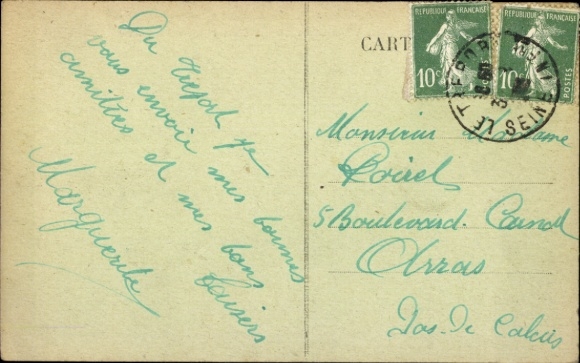 Du Tréport je
vous envoie mes bonnes
amitiés et mes bons
baisers
Marguerite
CART
REPUBLIQUE FRANÇAISE
10c
POSTES
REPUBLIQUE FRANÇAISE
10c
POSTES
LE TREPORT
SEINE
Monsieur Madame
Poiret
5 Boulevard Carnot
Arras
Pas-de-Calais